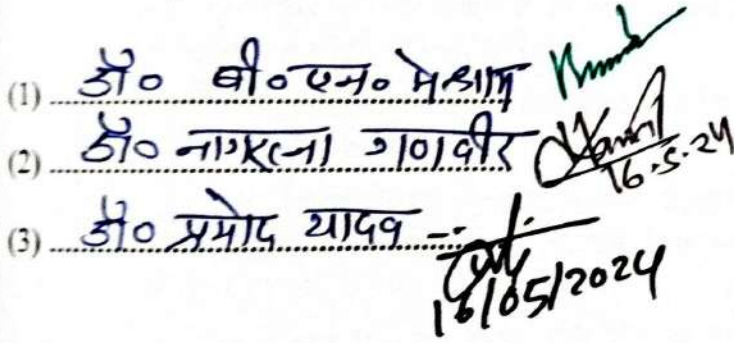 (1) डॉ० बी० एन० मेश्राम
(2) डॉ० नागरत्ना गणवीर 16.5.24
(3) डॉ० प्रमोद यादव
16/05/2024